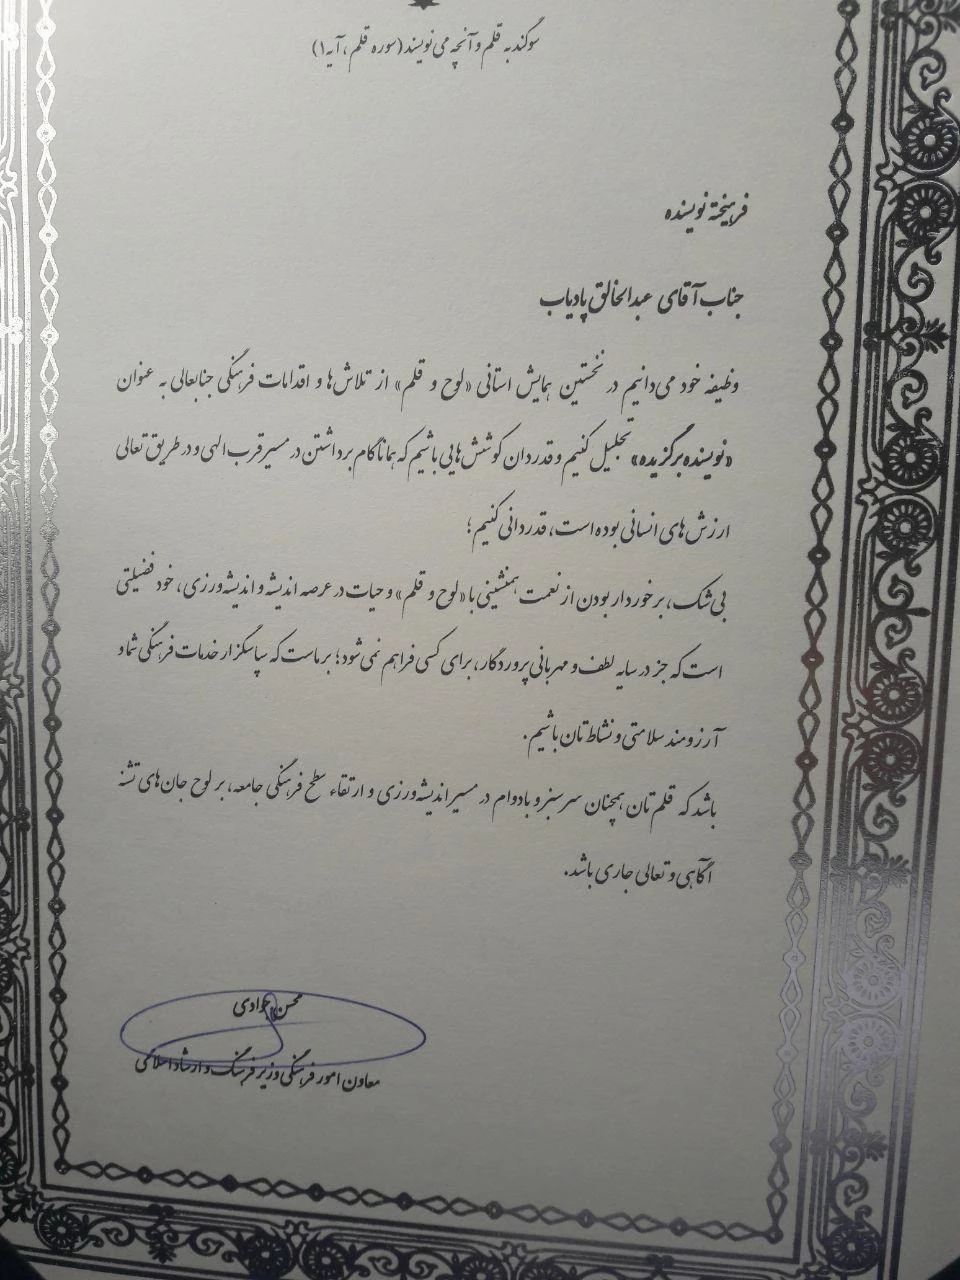 سوگند به قلم و آنچه می نویسند (سوره قلم، آیه ۱)
فرهیختۀ نویسنده
جناب آقای عبدالخالق پادیاب
وظیفه خود می‌دانیم در نخستین همایش استانی «لوح و قلم» از تلاش‌ها و اقدامات فرهنگی جنابعالی به عنوان
«نویسنده برگزیده» تجلیل کنیم و قدردان کوشش‌هایی باشیم که همانا گام برداشتن در مسیر قرب الهی و در طریق تعالی
ارزش‌های انسانی بوده است، قدردانی کنیم؛
بی‌شک، برخوردار بودن از نعمت همنشینی با «لوح و قلم» و حیات در عرصه اندیشه و اندیشه‌ورزی، خود فضیلتی
است که جز در سایه لطف و مهربانی پروردگار، برای کسی فراهم نمی‌شود؛ بر ماست که سپاسگزار خدمات فرهنگی شما و
آرزومند سلامتی و نشاط‌تان باشیم.
باشد که قلم‌تان همچنان سرسبز و بادوام در مسیر اندیشه‌ورزی و ارتقاء سطح فرهنگی جامعه، بر لوح جان‌های تشنه
آگاهی و تعالی جاری باشد.
محسن جوادی
معاون امور فرهنگی وزیر فرهنگ و ارشاد اسلامی